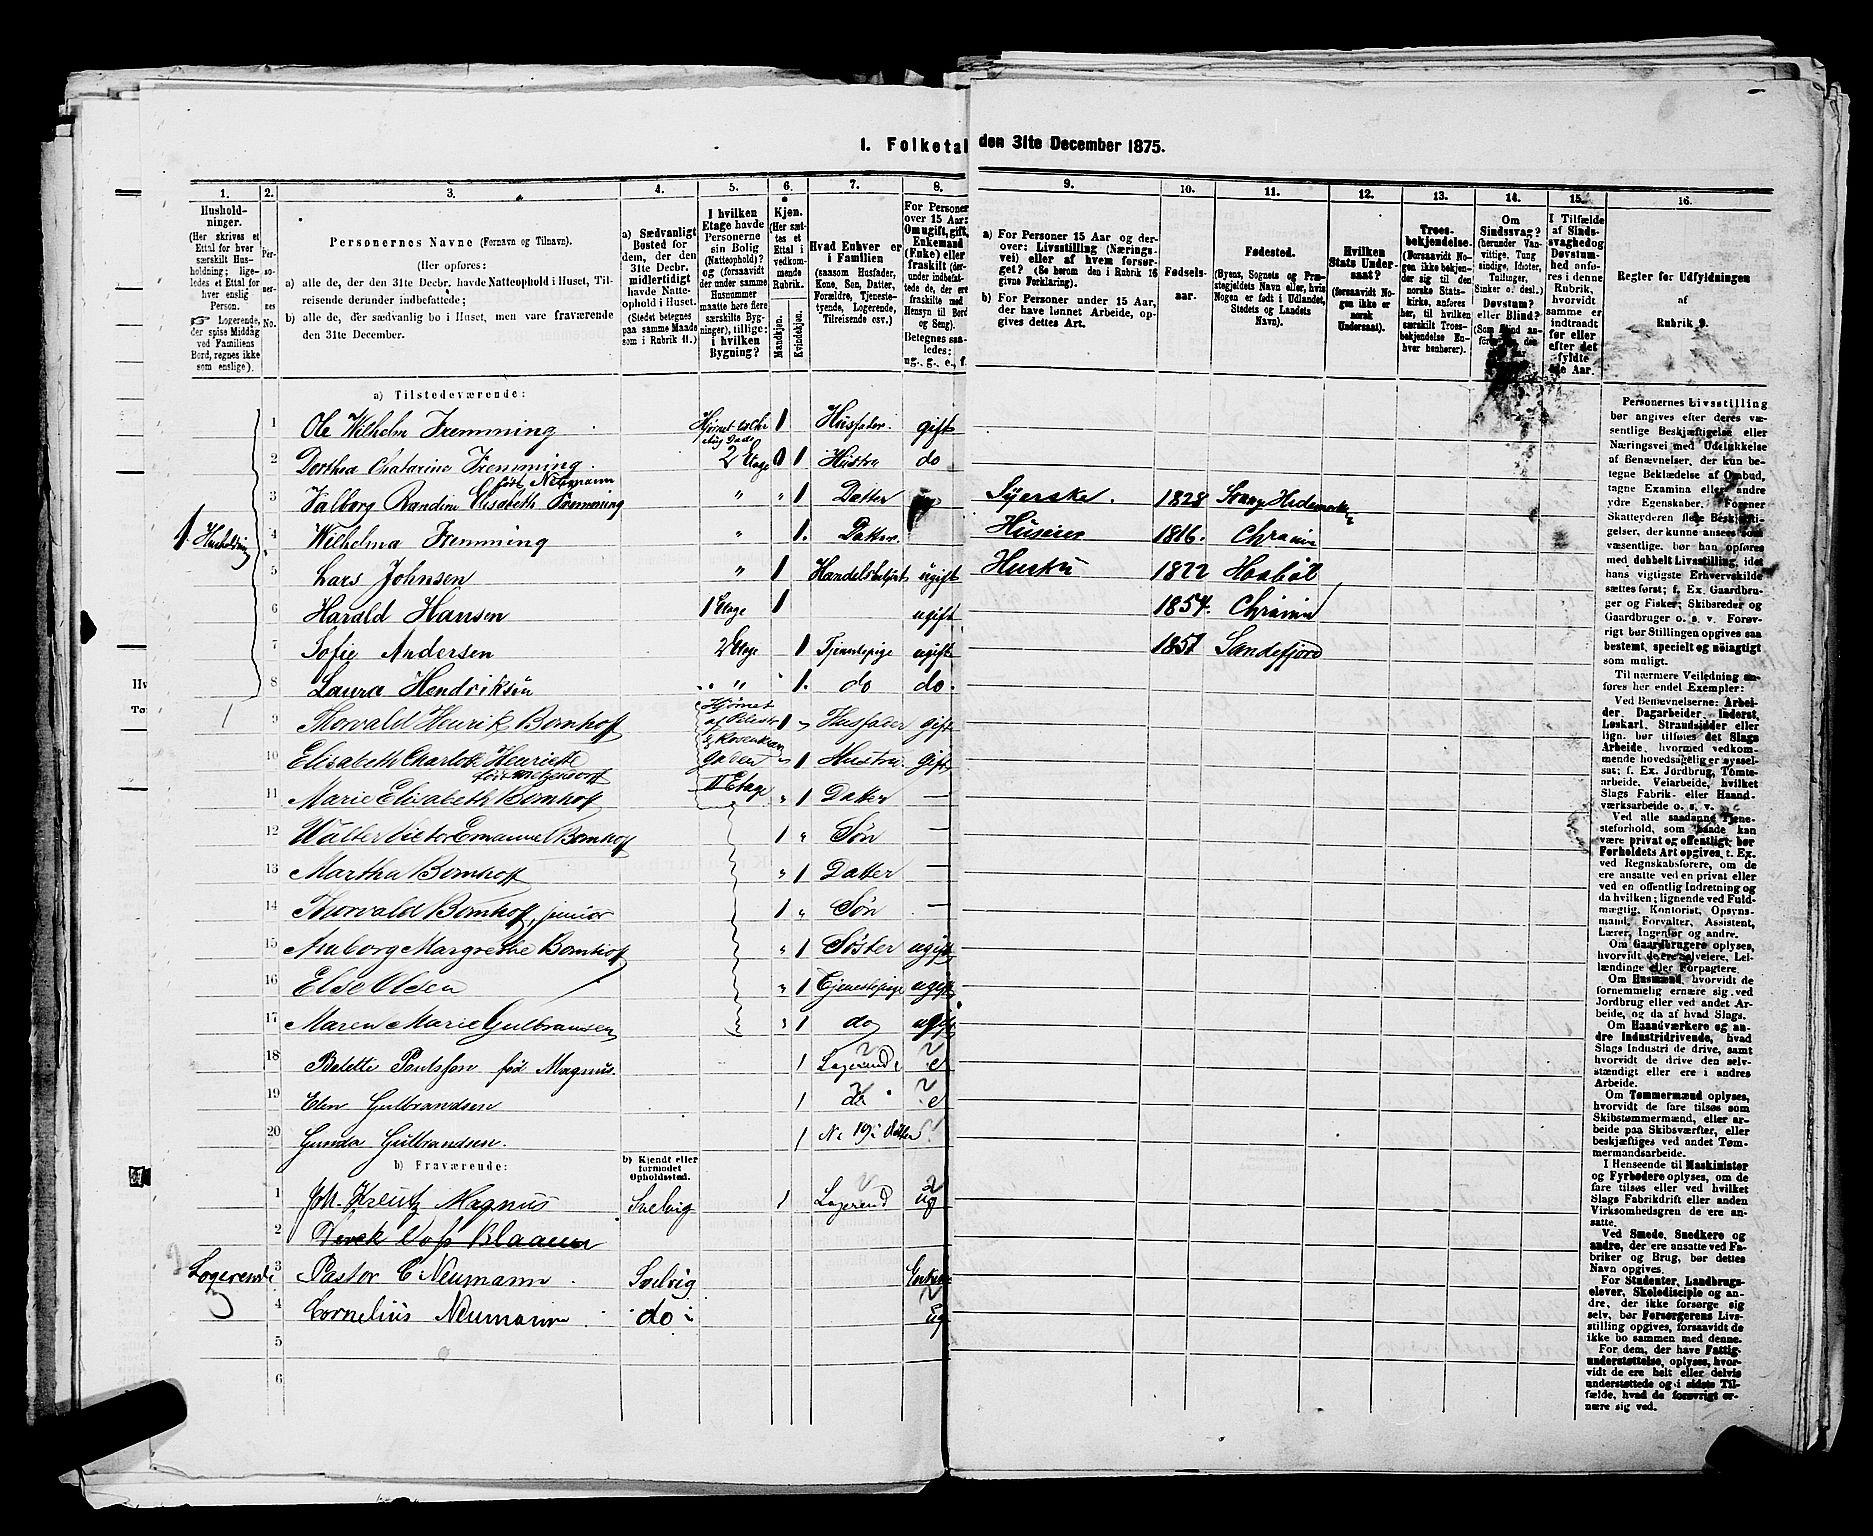 1. Folketal
den 31te December 1875.
1. 2. 3. 4. 5. 6. 7. 8. 9. 10. 11. 12. 13. 14. 15. 16.
Hushold-
ninger.
(Her skrives et
Ettal for hver
særskilt Hus-
holdning; lige-
ledes et Ettal for
hver enslig
Person.
Logerende,
der spise Middag
ved Familiens
Bord, regnes ikke
som enslige).
Per-
so-
ner-
nes
No.
Personernes Navne (Fornavn og Tilnavn).
(Her opføres:
a) alle de, der den 31te Decbr. havde Natteophold i Huset, Til-
reisende derunder indbefattede;
b) alle de, der sædvanlig bo i Huset, men vare fraværende
den 31te December.
a) Sædvanligt
Bosted for
dem, der den
31te Decbr.
midlertidigt
havde Natte-
ophold i Huset.
(Stedet betegnes
paa samme Maade
som i Rubrik 11.)
I hvilken
Etage havde
Personerne
sin Bolig
(Natteophold)?
og (forsaavidt
der under samme
Husnummer
maatte høre flere
særskilte Byg-
ninger), tillige:
i hvilken
Bygning?
Kjøn.
(Her sæt-
tes et
Ettal i
vedkom-
mende
Rubrik.
Mandkjøn.
Kvindekjøn.
Hvad Enhver er
i Familien
(saasom Husfader,
Kone, Søn, Datter,
Forældre, Tjeneste-
tyende, Logerende,
Tilreisende osv.)
For Personer
over 15 Aar:
Om ugift, gift,
Enkemand
(Enke) eller
fraskilt (der-
under indbefat-
tede de, der ere
fraskilte med
Hensyn til Bord
og Seng).
Betegnes saa-
ledes:
ug., g., e., f.
a) For Personer 15 Aar og der-
over: Livsstilling (Nærings-
vei) eller af hvem forsør-
get? (Se herom den i Rubrik 16
givne Forklaring).
b) For Personer under 15 Aar,
der have lønnet Arbeide, op-
gives dettes Art.
Fødsels-
aar.
Fødested.
(Byens, Sognets og Præ-
stegjeldets Navn eller, hvis
Nogen er født i Udlandet,
Stedets og Landets
Navn).
Hvilken
Stats Under-
saat?
(forsaavidt No-
gen ikke er
norsk
Undersaat).
Troes-
bekjendelse.
(Forsaavidt No-
gen ikke bekjen-
der sig til den
norske Stats-
kirke, anføres
her, til hvilken
særskilt Troes-
bekjendelse En-
hver henhører).
Om
Sindssvag?
(herunder Van-
vittige, Tung
sindige, Idioter,
Tullinger,
Sinker o. desl.)
Døvstum?
eller Blind?
I Tilfælde
af Sinds-
svaghed og
Døvstum-
hed anfø-
res i denne
Rubrik,
hvorvidt
samme er
indtraadt
før eller
efter det
fyldte
4de Aar.
Regler før Udfyldningen
af
Rubrik 9.
a) Tilstedeværende:
1 Ole Wilhelm Fremming 1 Husfader. gift
2 Dorthea Chatarine Fremming 2 Etage 1 Hustru do
født Neumann
3 Valborg Randine Elisabeth Fremming " " 1 Datter Syerske. 1828
1 Husholdning
4 Wilhelma Fremming " 1. Datter. Huseier 1816. Chrania
5 Lars Johnsen " 1 ugift Hustru 1822 Haabøl
6 Harald Hansen 1 Etage 1 ugift 1854. Chrania
7 Sofie Andersen 2 Etage 1 Tjenestepige ugift 1857 Sandefjord
8 Laura Hendriksen " " 1. do do.
9 Thorvald Henrik Bomhoff Hjørnet 1 " Husfader gift
10 Elisabeth Charlotte Henriette Gaden " 1 Hustru gift
født
11 Marie Elisabeth Bomhoff II Etage " 1 Datter —
12 Walter Victor Emanuel Bomhoff 1 " Søn —
13 Martha Bomhoff " 1 Datter —
14 Thorvald Bomhoff, junior 1 " Søn —
15 Aalborg Margrethe Bomhoff " 1 Søster ugift
16 Else Olsen " 1 Tjenestepige ugift
17 Maren Marie Gulbransen " 1 do ugift
18 Poulsson fød Magnus. 1 Logerend. e
19 Elen Gulbrandsen 1 do e
20 Gunda Gulbrandsen. 1 No 19s datter
b) Fraværende:
b) Kjendt eller
formodet
Opholdssted.
1 Joh. Kreutz Magnus Svelvig 1 Logerend ug
2
Logerende
3 Pastor C Neumann Svelvig
4 Cornelius Neumann do ug
5
6
Personernes Livsstilling
bør angives efter deres væ-
sentlige Beskjæftigelse eller
Næringsvei med Udelukkelse
af Benævnelser, der kun be-
tegne Beklædelse af Ombud,
tagne Examina eller andre
ydre Egenskaber. Forener
Skatteyderen flere Beskjæfti-
gelser, der kunne ansees som
væsentlige, bør han opføres
med dobbelt Livsstilling, idet
hans vigtigste Erhvervskilde
sættes først; f. Ex. Gaardbru-
ger og Fisker; Skibsreder og
Gaardbruger o. s. v. Forøv-
rigt bør Stillingen opgives saa
bestemt, specielt og nøiagtigt
som muligt.
Til nærmere Veiledning an-
føres her endel Exempler:
Ved Benævnelserne: Arbei-
der, Dagarbeider, Inderst,
Løskarl, Strandsidder eller
lign. bør tilføies det Slags
Arbeide, hvormed vedkom-
mende hovedsagelig er syssel-
sat; f. Ex. Jordbrug, Tømte-
arbeide, Veiarbeide, hvilket
Slags Fabrik- eller Haand-
værksarbeide o. s. v.
Ved alle saadanne Tjene-
steforhold, som baade kan
være privat og offentligt, bør
Forholdets Art opgives, t. Ex.
ved Regnskabsførere, om de
ere ansatte ved en privat eller
ved en offentlig Indretning og
da hvilken; lignende ved Fuld-
mægtig, Kontorist, Opsyns-
mand, Forvalter, Assistent,
Lærer, Ingeniør og andre.
Om Gaardbrugere oplyses,
hvorvidt de ere Selveiere, Lei-
lændinge eller Forpagtere.
Om Husmænd, hvorvidt de
fornemmelig ernære sig ved
Jordbrug eller ved andet Ar-
beide, og da af hvad Slags.
Om Haandværkere og an-
dre Industridrivende, hvad
Slags Industri de drive, samt
hvorvidt de drive den selv-
stændigt eller ere i andres
Arbeide.
Om Tømmermænd oplyses,
hvorvidt de fare tilsøs som
Skibstømmermænd, eller ar-
beide paa Skibsværfter, eller
beskjæftiges ved andet Tøm-
mermandsarbeide.
I Henseende til Maskinister
og Fyrbødere oplyses, om de
fare tilsøs eller ved hvilket
Slags Fabrikdrift eller anden
Virksomhedsgren de ere an-
satte.
Ved Smede, Snedkere og
andre, der ere ansatte ved Fa-
briker og Brug, bør dettes
Navn opgives.
For Studenter, Landbrugs-
elever, Skoledisciple og an-
dre, der ikke forsørge sig
selv, bør Forsørgerens Livs-
stilling opgives, forsaavidt de
ikke bo sammen med denne.
For dem, der have Fattig-
understøttelse, oplyses, hvor-
vidt de ere helt eller delvis
understøttede og i sidste Til-
fælde, hvad de forøvrigt er-
nære sig ved.